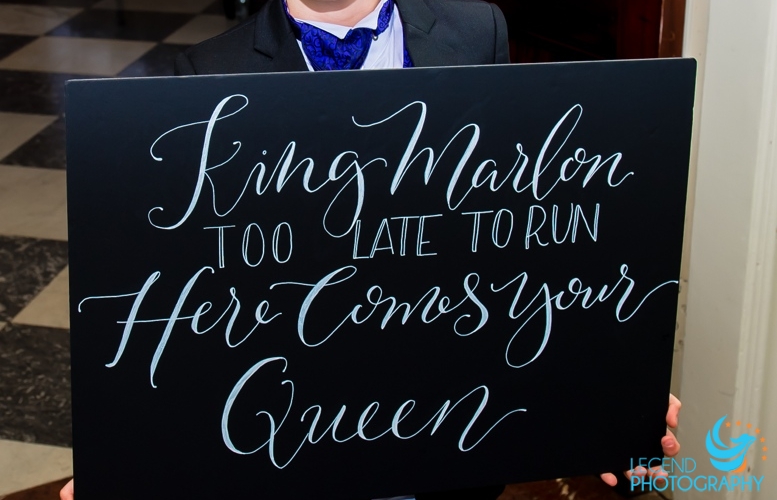 King Marlon
TOO LATE TO RUN
Here Comes your
Queen
LEGEND
PHOTOGRAPHY